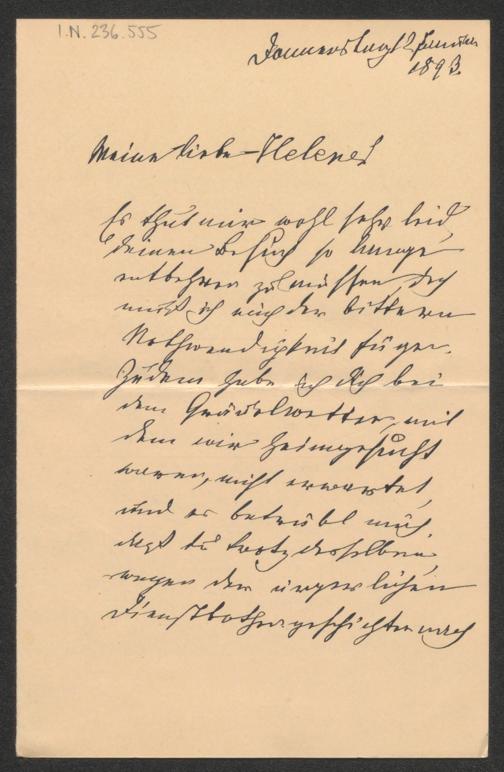 I.N. 236.555
Donnerstag 2 Februar
1893.
Meine liebe Helene!
Es thut mir wohl sehr leid,
deinen Besuch so lange
entbehren zu müssen, doch
muß ich mich der bittern
Nothwendigkeit fügen.
Zudem habe ich dich bei
dem Gräuelwetter, mit
dem wir heimgesucht
waren, nicht erwartet,
und es betrübt mich,
daß du trotz desselben
wegen der ärgerlichen
Dienstbothengeschichten nach